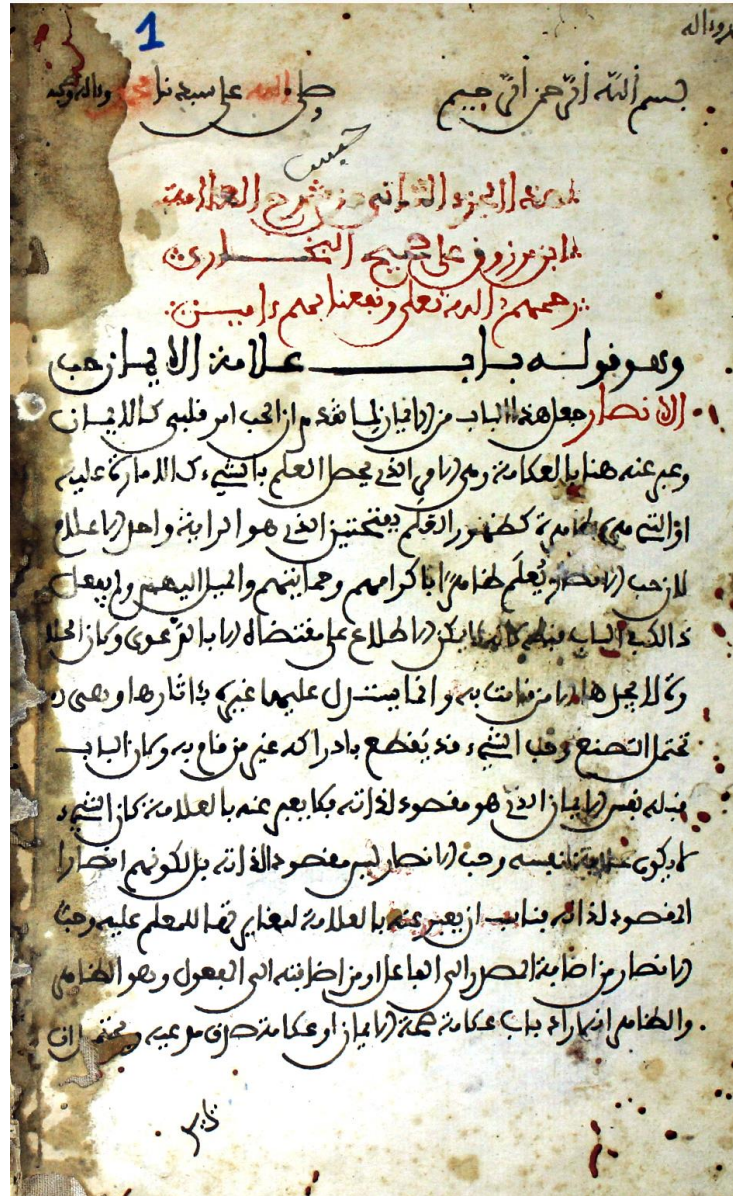 1
بسم الله الرحمن الرحيم وصلى الله على سيدنا محمد وءاله وصحبه
حبيب
هذا الجزء الثاني من شرح العلامة
ابن مرزوق على صحيح البخاري
رحمهم الله تعلى ونفعنا بهم ءامين
وهو قوله باب علامة الايمان حب
الانصار جعل هذا الباب من الايمان لما تقدم من ان الحب امر قلبي كالايمان
وعبر عنه هنا بالعلامة وهي الامر الذي يحصل العلم بالشيء كالامارة عليه
كظهور العلم بفتحتين الذي هو الراية واصل الاعلام
لان حب الانصار يعلم ظاهرا باكرامهم وحمايتهم والميل اليهم ولم يفعل
ذلك في الباب قبله لانه لا يمكن الاطلاع على مقتضاه الا بالدعوى وكان الحلا
وة لا يجدها الا من قامت به وانما يستدل عليها غيره بآثارها وهي
تحتمل التصنع وحب الشيء قد يقطع بادراكه غير من قام به وكان الباب
قبله نفس الايمان الذي هو مقصود لذاته فلا يعبر عنه بالعلامة لان الشيء
لا يكون علامة نفسه وحب الانصار ليس مقصودا لذاته بل لكونهم انصارا
المقصود لذاته فناسب ان يعبر عنه بالعلامة ليغاير المعلم عليه وحب
الانصار من اضافة المصدر الى الفاعل او من اضافته الى المفعول وهو الظاهر
والظاهر انه اراد باب علامة صحة الايمان او علامة صدق مدعيه ويحتمل ان